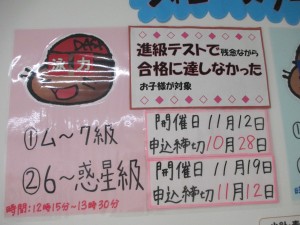 泳力
進級テストで残念ながら
合格に達しなかった
お子様が対象
①ム～7級
②6～惑星級
時間:12時15分～13時30分
開催日11月12日
申込締切10月28日
開催日11月19日
申込締切11月12日